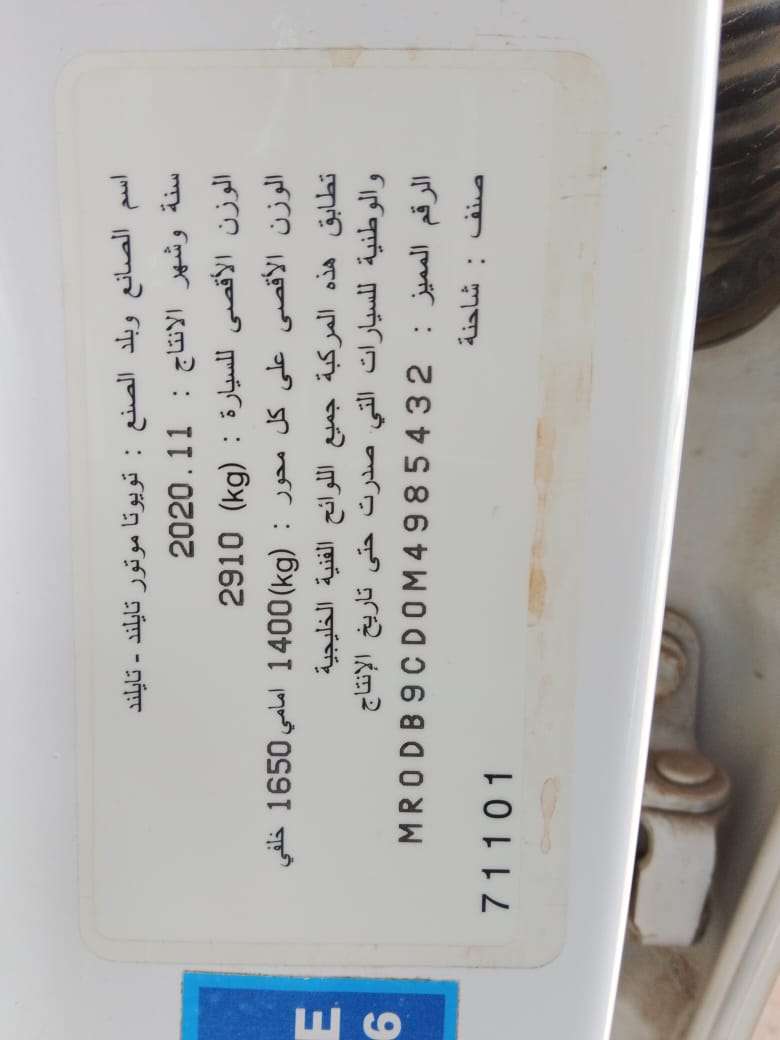 اسم الصانع وبلد الصنع : تويوتا موتور تايلند - تايلند
سنة وشهر الانتاج : 2020.11
الوزن الأقصى للسيارة : 2910 (kg)
الوزن الأقصى على كل محور : 1400(kg) امامي 1650 خلفي
تطابق هذه المركبة جميع اللوائح الفنية الخليجية
والوطنية للسيارات التي صدرت حتى تاريخ الإنتاج
الرقم المميز : MR0DB9CD0M4985432
صنف : شاحنة
71101
E
6